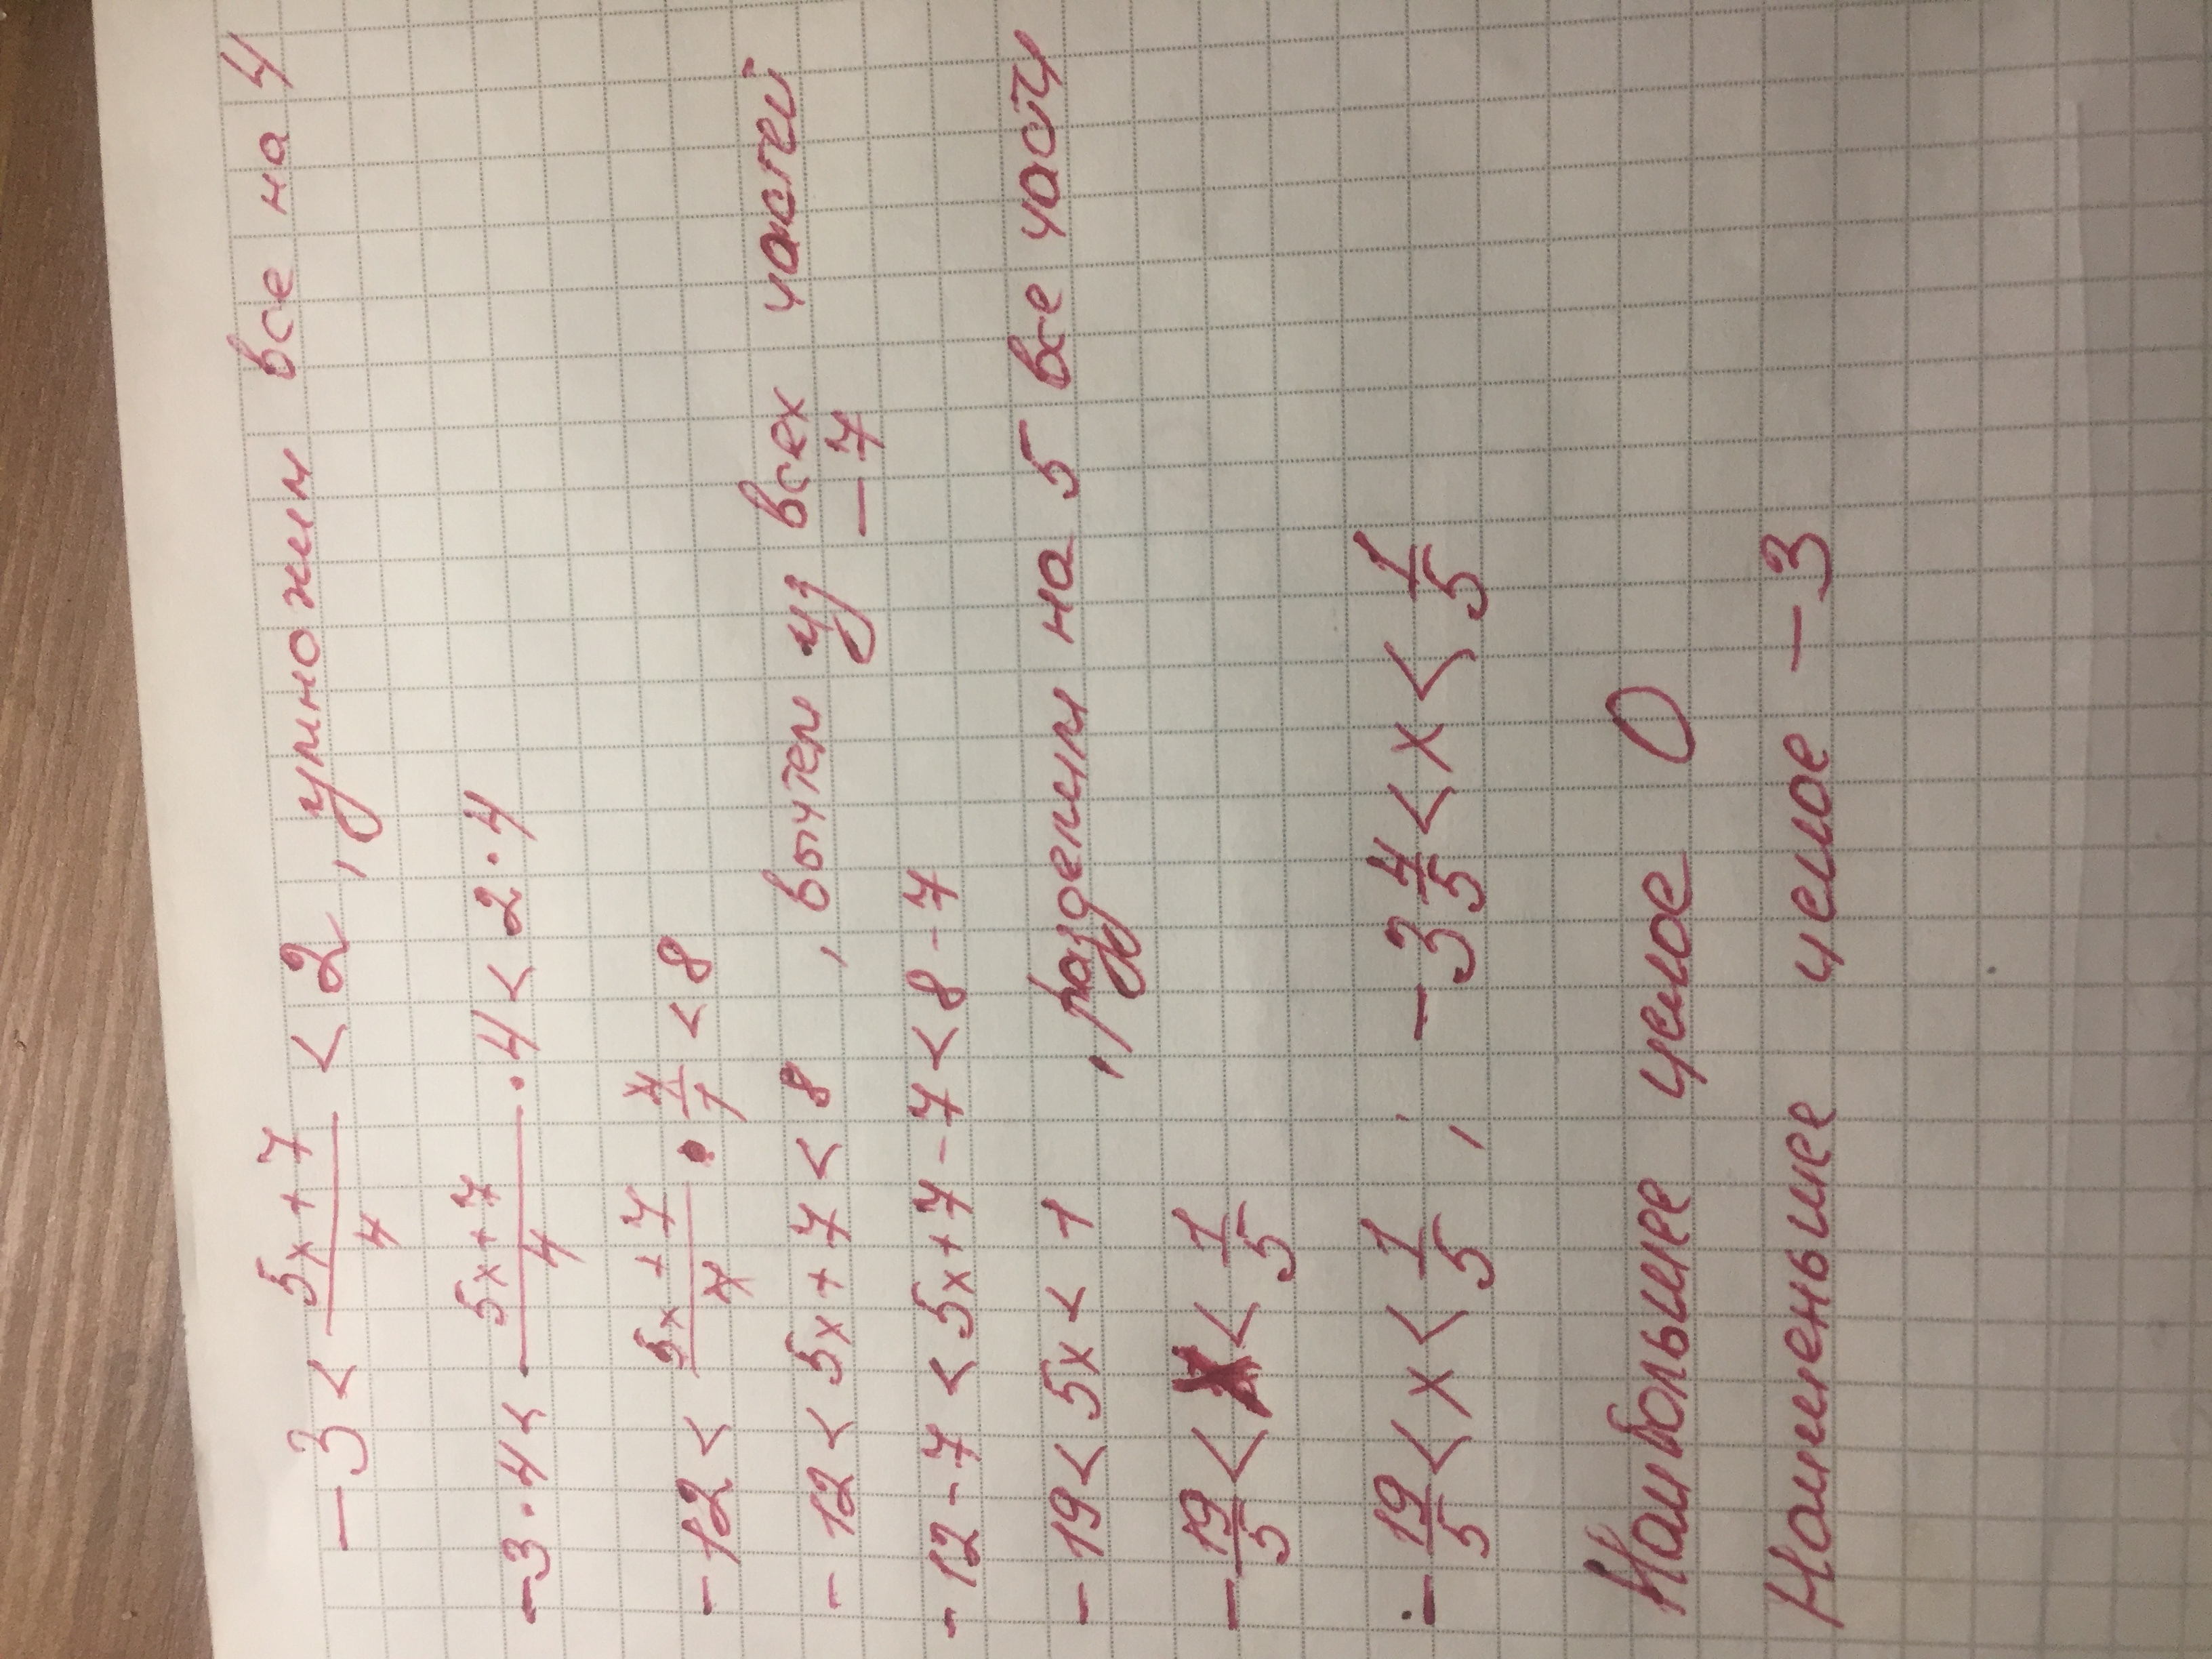 -3 < (5x+7)/4 < 2, умножим все на 4
-3·4 < (5x+7)/4 · 4 < 2·4
-12 < (5x+7)/4 · 4/1 < 8
-12 < 5x+7 < 8, вычтем из всех частей
-7
-12-7 < 5x+7-7 < 8-7
-19 < 5x < 1, разделим на 5 все части
-19/5 < x < 1/5
-19/5 < x < 1/5; -3 4/5 < x < 1/5
Наибольшее целое 0
Наименьшее целое -3